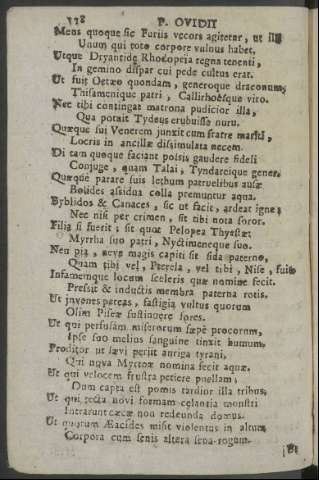 128 P. OVIDII
Mens quoque sic Furiis vecors agitetur, ut illi
Unum qui toto corpore vulnus habet,
Utque Dryantidæ Rhodopeia regna tenenti,
In gemino dispar cui pede cultus erat.
Ut fuit Oetæo quondam, generoque draconum,
Thisamenique patri, Callirhoësque viro.
Nec tibi contingat matrona pudicior illa,
Qua potuit Tydeus erubuisse nuru.
Quæque sui Venerem junxit cum fratre mariti,
Locris in ancillæ dissimulata necem.
Di tam quoque faciant possis gaudere fideli
Conjuge, quam Talai, Tyndareique gener,
Quæque parare suis lethum patruelibus ausæ
Bolides assidua colla premuntur aqua.
Byblidos & Canaces, sic ut facit, ardeat igne;
Nec nisi per crimen, sit tibi nota soror.
Filia si fuerit; sit quot Pelopea Thyestæ,
Myrrha suo patri, Nyctimeneque suo.
Neu pia, neve magis capiti sit sida paterno,
Quam tibi vel, Pterela, vel tibi, Nise, fuit
Infamemque locum sceleris quæ nomine fecit.
Pressit & inductis membra paterna rotis.
Ut juvenes pereas, fastigia vultus quorum
Olim Piseæ sustinuere fores.
Ut qui perfusam miserorum sæpè procorum,
Ipse suo melius sanguine tinxit humum,
Proditor ut sævi perjit auriga tyrani,
Qui nova Myrtoæ nomina fecit aquæ,
Ut qui velocem frustra petiere puellam;
Dum capta est pomis tardior illa tribus,
Ut qui tecta novi formam celantia monstri
Intrarunt cæcæ non redeunda domus.
Ut quorum Æacides misit violentus in altum
Corpora cum senis altera sena rogum.